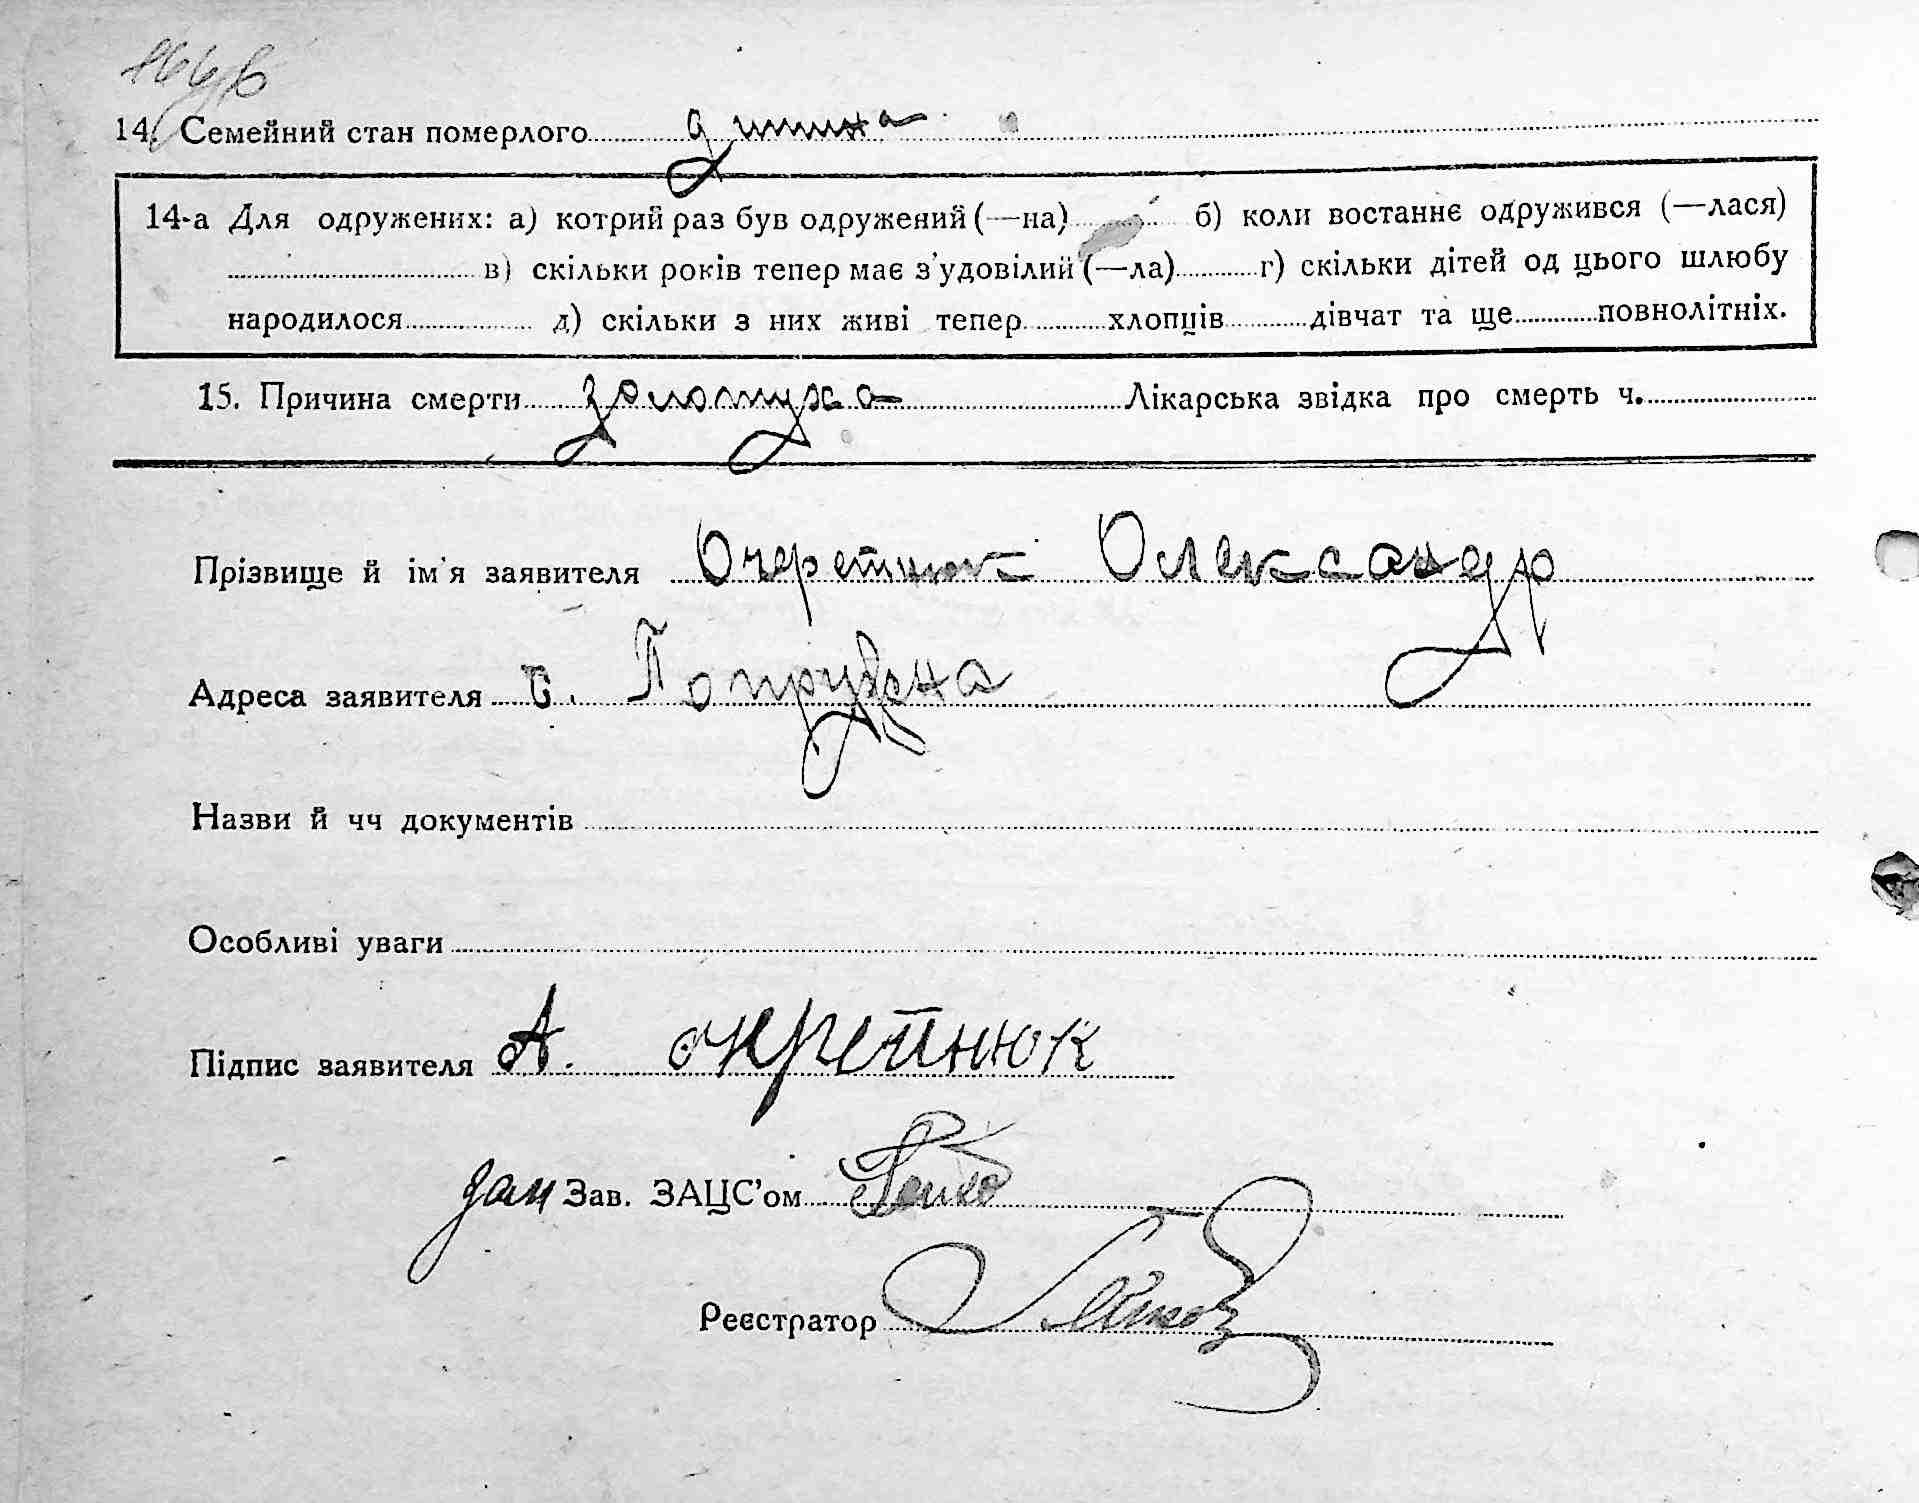 14. Семейний стан померлого дитина
14-а Для одружених: а) котрий раз був одружений (—на) б) коли востаннє одружився (—лася)
в) скільки років тепер має з'удовілий (—ла) г) скільки дітей од цього шлюбу
народилося д) скільки з них живі тепер хлопців дівчат та ще повнолітніх.
15. Причина смерти золотуха Лікарська звідка про смерть ч.
Прізвище й ім'я заявителя Очеретнюк Олександр
Адреса заявителя с. Попружна
Назви й чч документів
Особливі уваги
Підпис заявителя А. очеретнюк
Зав. ЗАЦС'ом
Реєстратор